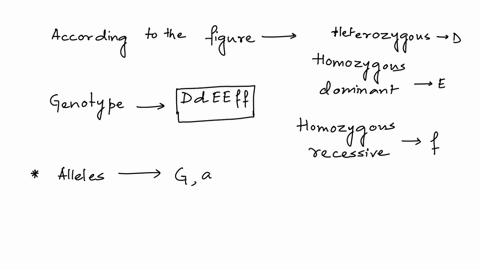 According to the figure → Heterozygous → D
Homozygous dominant → E
Genotype → DdEEff
Homozygous recessive → f
* Alleles → G, a